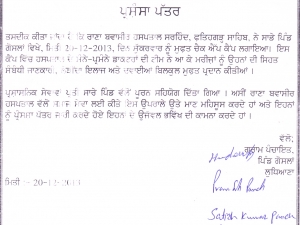 ਪ੍ਰਸੰਸਾ ਪੱਤਰ
ਤਸਦੀਕ ਕੀਤਾ ਕਿ ਰਾਣਾ ਬਵਾਸੀਰ ਹਸਪਤਾਲ ਸਰਹਿੰਦ, ਫਤਿਹਗੜ੍ਹ ਸਾਹਿਬ, ਨੇ ਸਾਡੇ ਪਿੰਡ
ਗੋਸਲਾਂ ਵਿਖੇ, ਮਿਤੀ 20-12-2013, ਦਿਨ ਸ਼ੁੱਕਰਵਾਰ ਨੂੰ ਮੁਫਤ ਚੈਕ ਅੱਪ ਕੈਂਪ ਲਗਾਇਆ। ਇਸ
ਕੈਂਪ ਵਿੱਚ ਹਸਪਤਾਲ ਦੇ ਡਾਕਟਰਾਂ ਦੀ ਟੀਮ ਨੇ ਆ ਕੇ ਮਰੀਜ਼ਾਂ ਨੂੰ ਉਹਨਾਂ ਦੀ ਸਿਹਤ
ਸੰਬੰਧੀ ਜਾਣਕਾਰੀ, ਇਲਾਜ ਅਤੇ ਦਵਾਈਆਂ ਬਿਲਕੁਲ ਮੁਫਤ ਪ੍ਰਦਾਨ ਕੀਤੀਆਂ ।
ਪ੍ਰਸ਼ਾਸਨਿਕ ਸੇਵਾਵਾਂ ਪ੍ਰਤੀ ਸਾਰੇ ਪਿੰਡ ਵੱਲੋਂ ਪੂਰਨ ਸਹਿਯੋਗ ਦਿੱਤਾ ਗਿਆ । ਅਸੀਂ ਰਾਣਾ ਬਵਾਸੀਰ
ਹਸਪਤਾਲ ਵੱਲੋਂ ਸੇਵਾ ਲਈ ਕੀਤੇ ਇਸ ਉਪਰਾਲੇ ਉਤੇ ਮਾਣ ਮਹਿਸੂਸ ਕਰਦੇ ਹਾਂ ਅਤੇ ਇਹਨਾਂ
ਨੂੰ ਪ੍ਰਸੰਸਾ ਪੱਤਰ ਜਾਰੀ ਕਰਦੇ ਹੋਏ ਇਹਨਾਂ ਦੇ ਉੱਜਵਲ ਭਵਿੱਖ ਦੀ ਕਾਮਨਾ ਕਰਦੇ ਹਾਂ ।
ਵੱਲੋਂ:
ਗ੍ਰਾਮ ਪੰਚਾਇਤ,
ਪਿੰਡ ਗੋਸਲਾਂ
ਲੁਧਿਆਣਾ
ਮਿਤੀ - 20-12-2013
Satish Kumar Panch